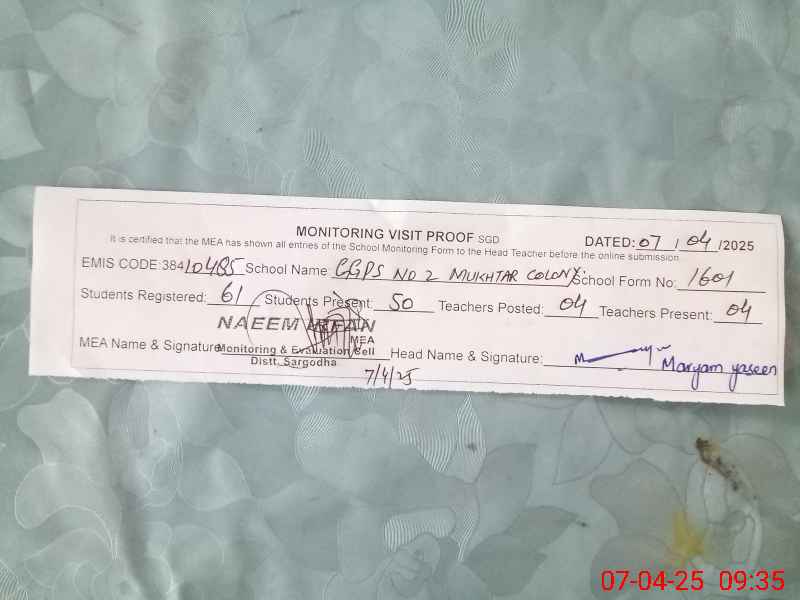 MONITORING VISIT PROOF SGD DATED: 07 / 04 /2025
It is certified that the MEA has shown all entries of the School Monitoring Form to the Head Teacher before the online submission.
EMIS CODE:38410485 School Name GGPS NO 2 MUKHTAR COLONY School Form No: 1601
Students Registered: 61 Students Present: 50 Teachers Posted: 04 Teachers Present: 04
NAEEM IRFAN
MEA
MEA Name & Signature Monitoring & Evaluation Cell Head Name & Signature: Maryam yaseen
Distt. Sargodha
7/4/25
07-04-25 09:35